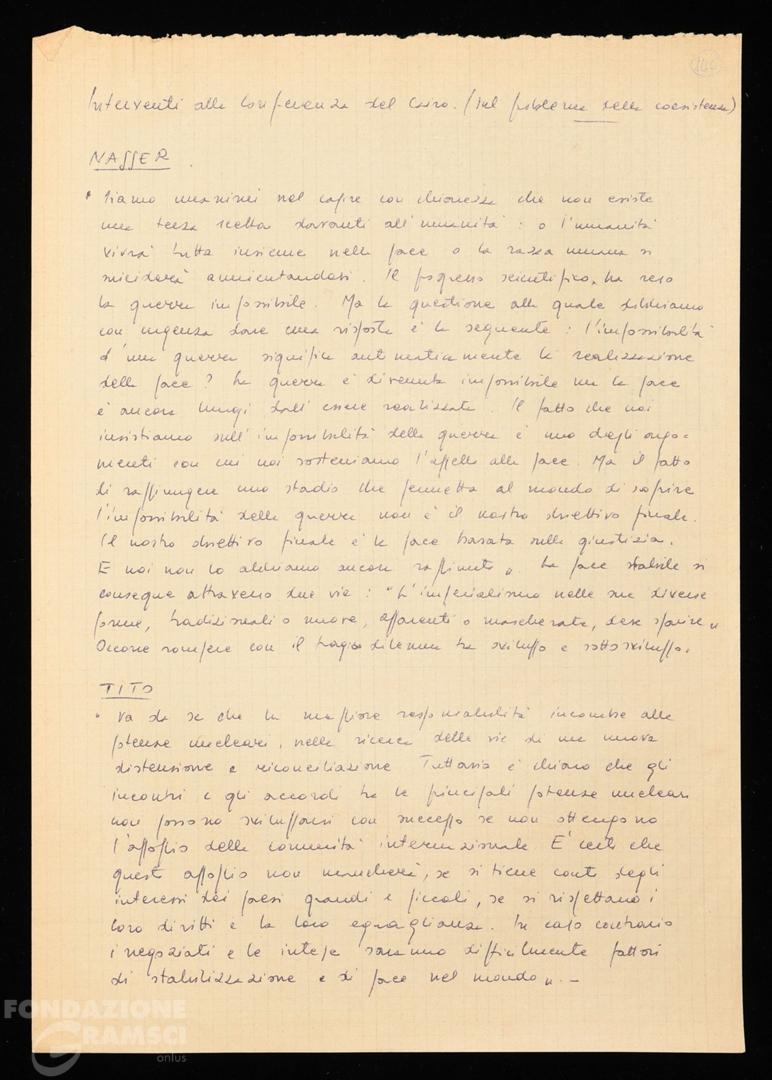 140
Interventi alla Conferenza del Cairo. (sul problema della coesistenza)
NASSER
" Siamo unanimi nel capire con chiarezza che non esiste
una terza scelta davanti all'umanità : o l'umanità
vivrà tutta insieme nella pace o la razza umana si
suiciderà annientandosi. Il progresso scientifico, ha reso
la guerra impossibile. Ma la questione alla quale dobbiamo
con urgenza dare una risposta è la seguente : l'impossibilità
d'una guerra significa automaticamente la realizzazione
della pace ? La guerra è divenuta impossibile ma la pace
è ancora lungi dall'essere realizzata. Il fatto che noi
insistiamo sull'impossibilità della guerra è uno degli argo-
menti con cui noi sosteniamo l'appello alla pace. Ma il fatto
di raggiungere uno stadio che permetta al mondo di scoprire
l'impossibilità della guerra non è il nostro obiettivo finale.
Il nostro obiettivo finale è la pace basata sulla giustizia.
E noi non lo abbiamo ancora raggiunto". La pace stabile si
consegue attraverso due vie : "L'imperialismo nelle sue diverse
forme, tradizionali o nuove, apparenti o mascherate, deve sparire"
Occorre rompere con il tragico dilemma tra sviluppo e sottosviluppo.
TITO
" Va da se che la maggiore responsabilità incombe alle
potenze nucleari, nella ricerca delle vie di una nuova
distensione e riconciliazione Tuttavia è chiaro che gli
incontri e gli accordi tra le principali potenze nucleari
non possono svilupparsi con successo se non ottengono
l'appoggio della comunità internazionale. E' certo che
questo appoggio non mancherà, se si tiene conto degli
interessi dei paesi grandi e piccoli, se si rispettano i
loro diritti e la loro eguaglianza. In caso contrario
i negoziati e le intese saranno difficilmente fattori
di stabilizzazione e di pace nel mondo". -
FONDAZIONE
GRAMSCI
onlus